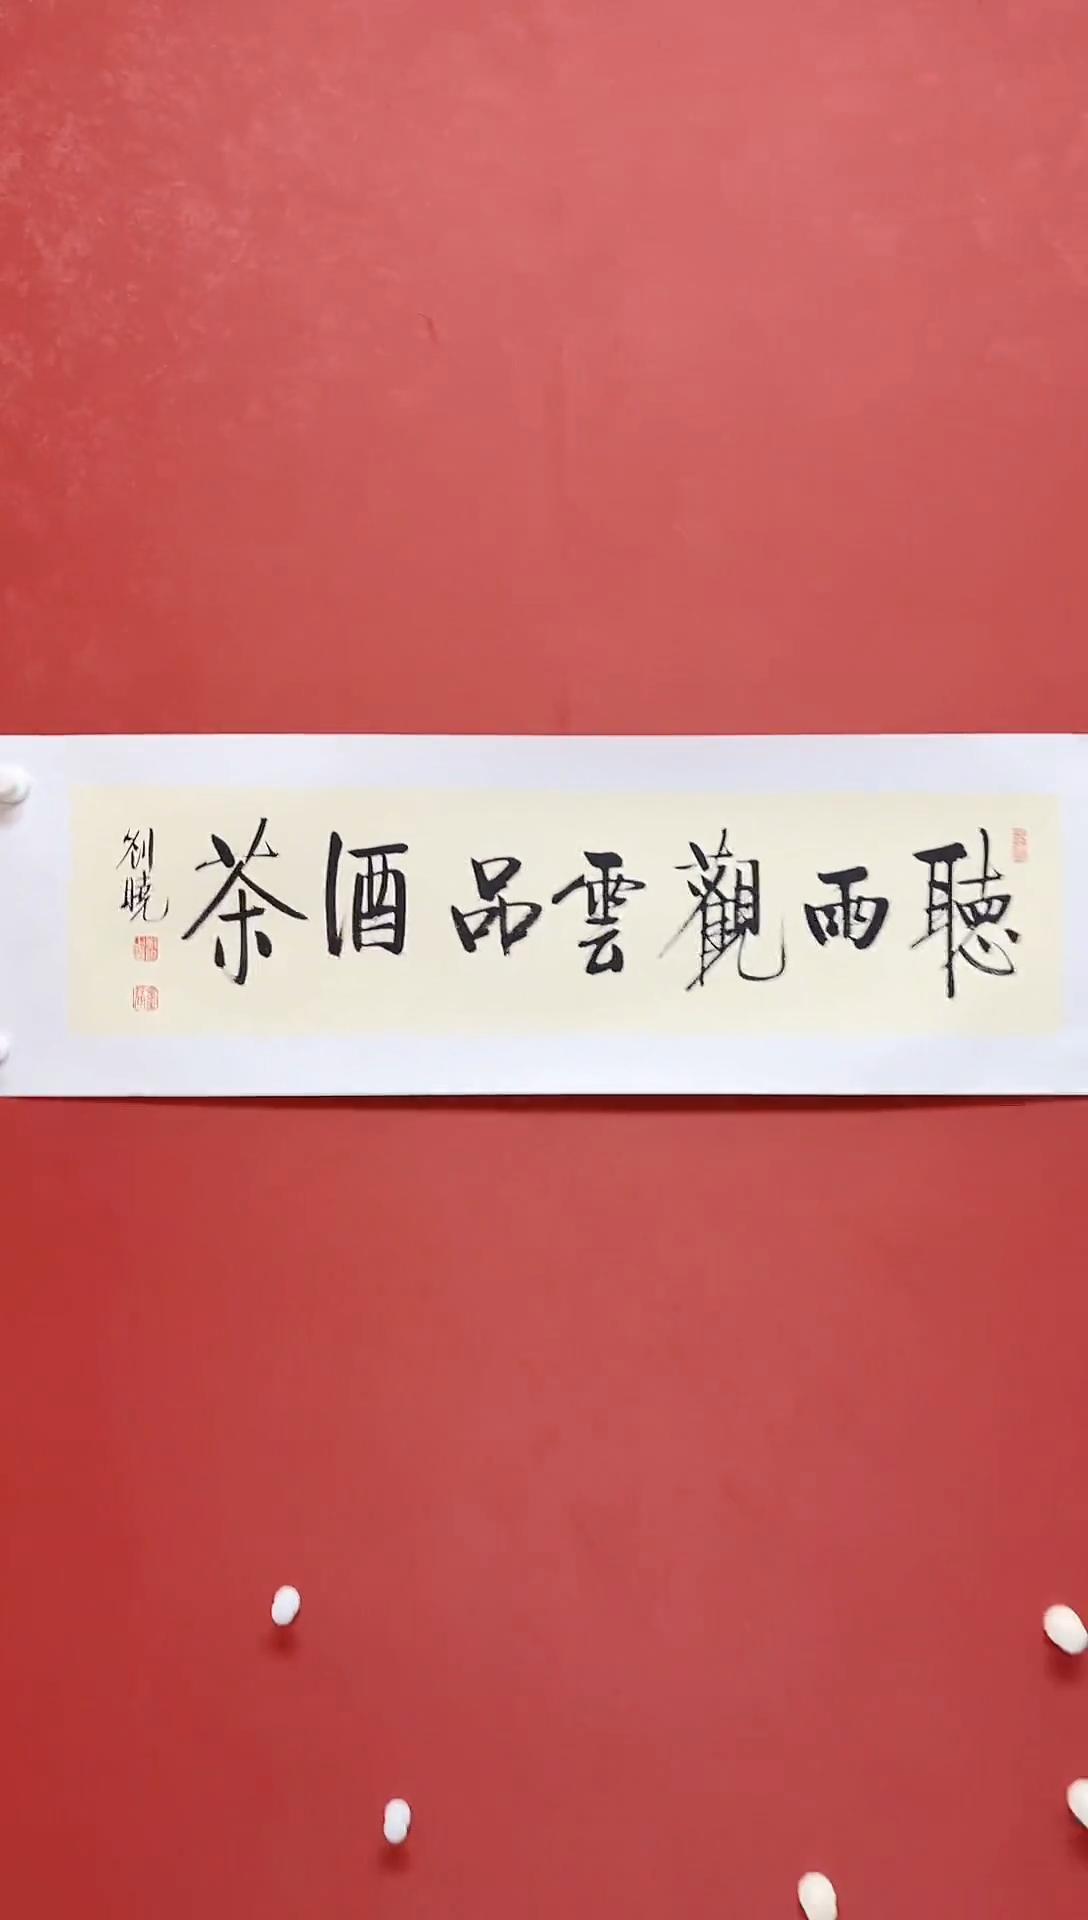 聽雨觀雲品酒茶
劉曉